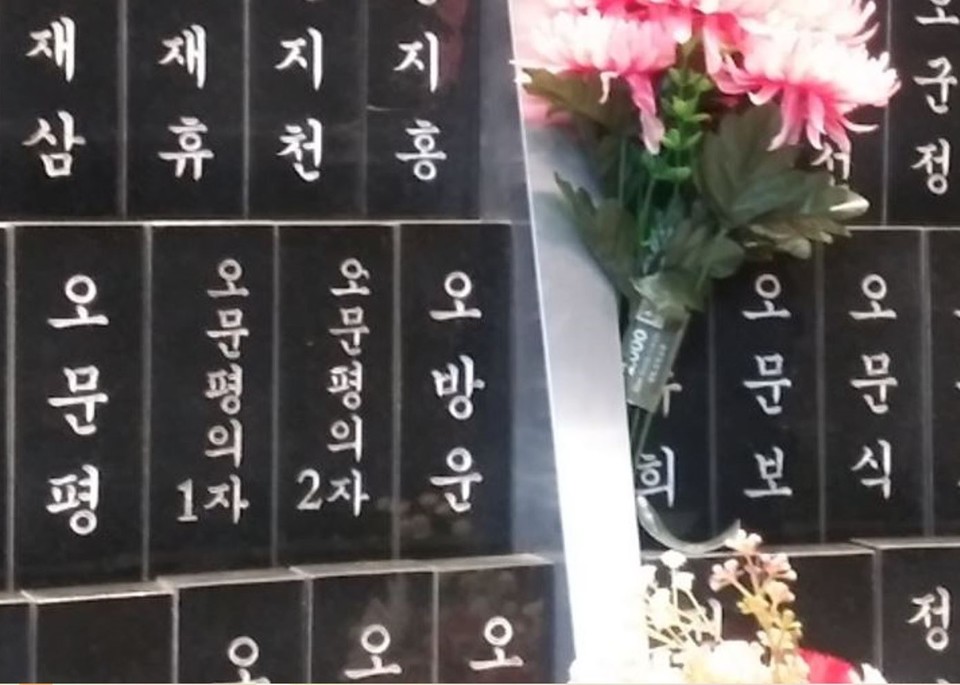 재삼
재휴
지천
지홍
군정
오문평
오문평의1자
오문평의2자
오방운
희
오문보
오문식
오
오
오
정
2000